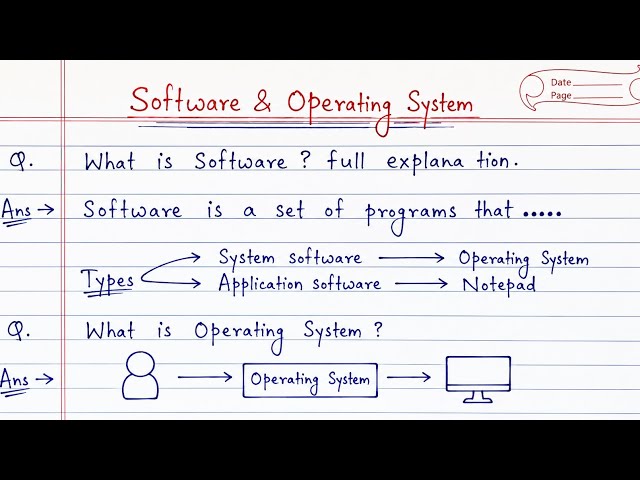 Date ________
Page ________
Software & Operating System
Q. What is Software? full explana tion.
Ans → Software is a set of programs that .....
Types → System software → Operating System
→ Application software → Notepad
Q. What is Operating System?
Ans → → Operating System →